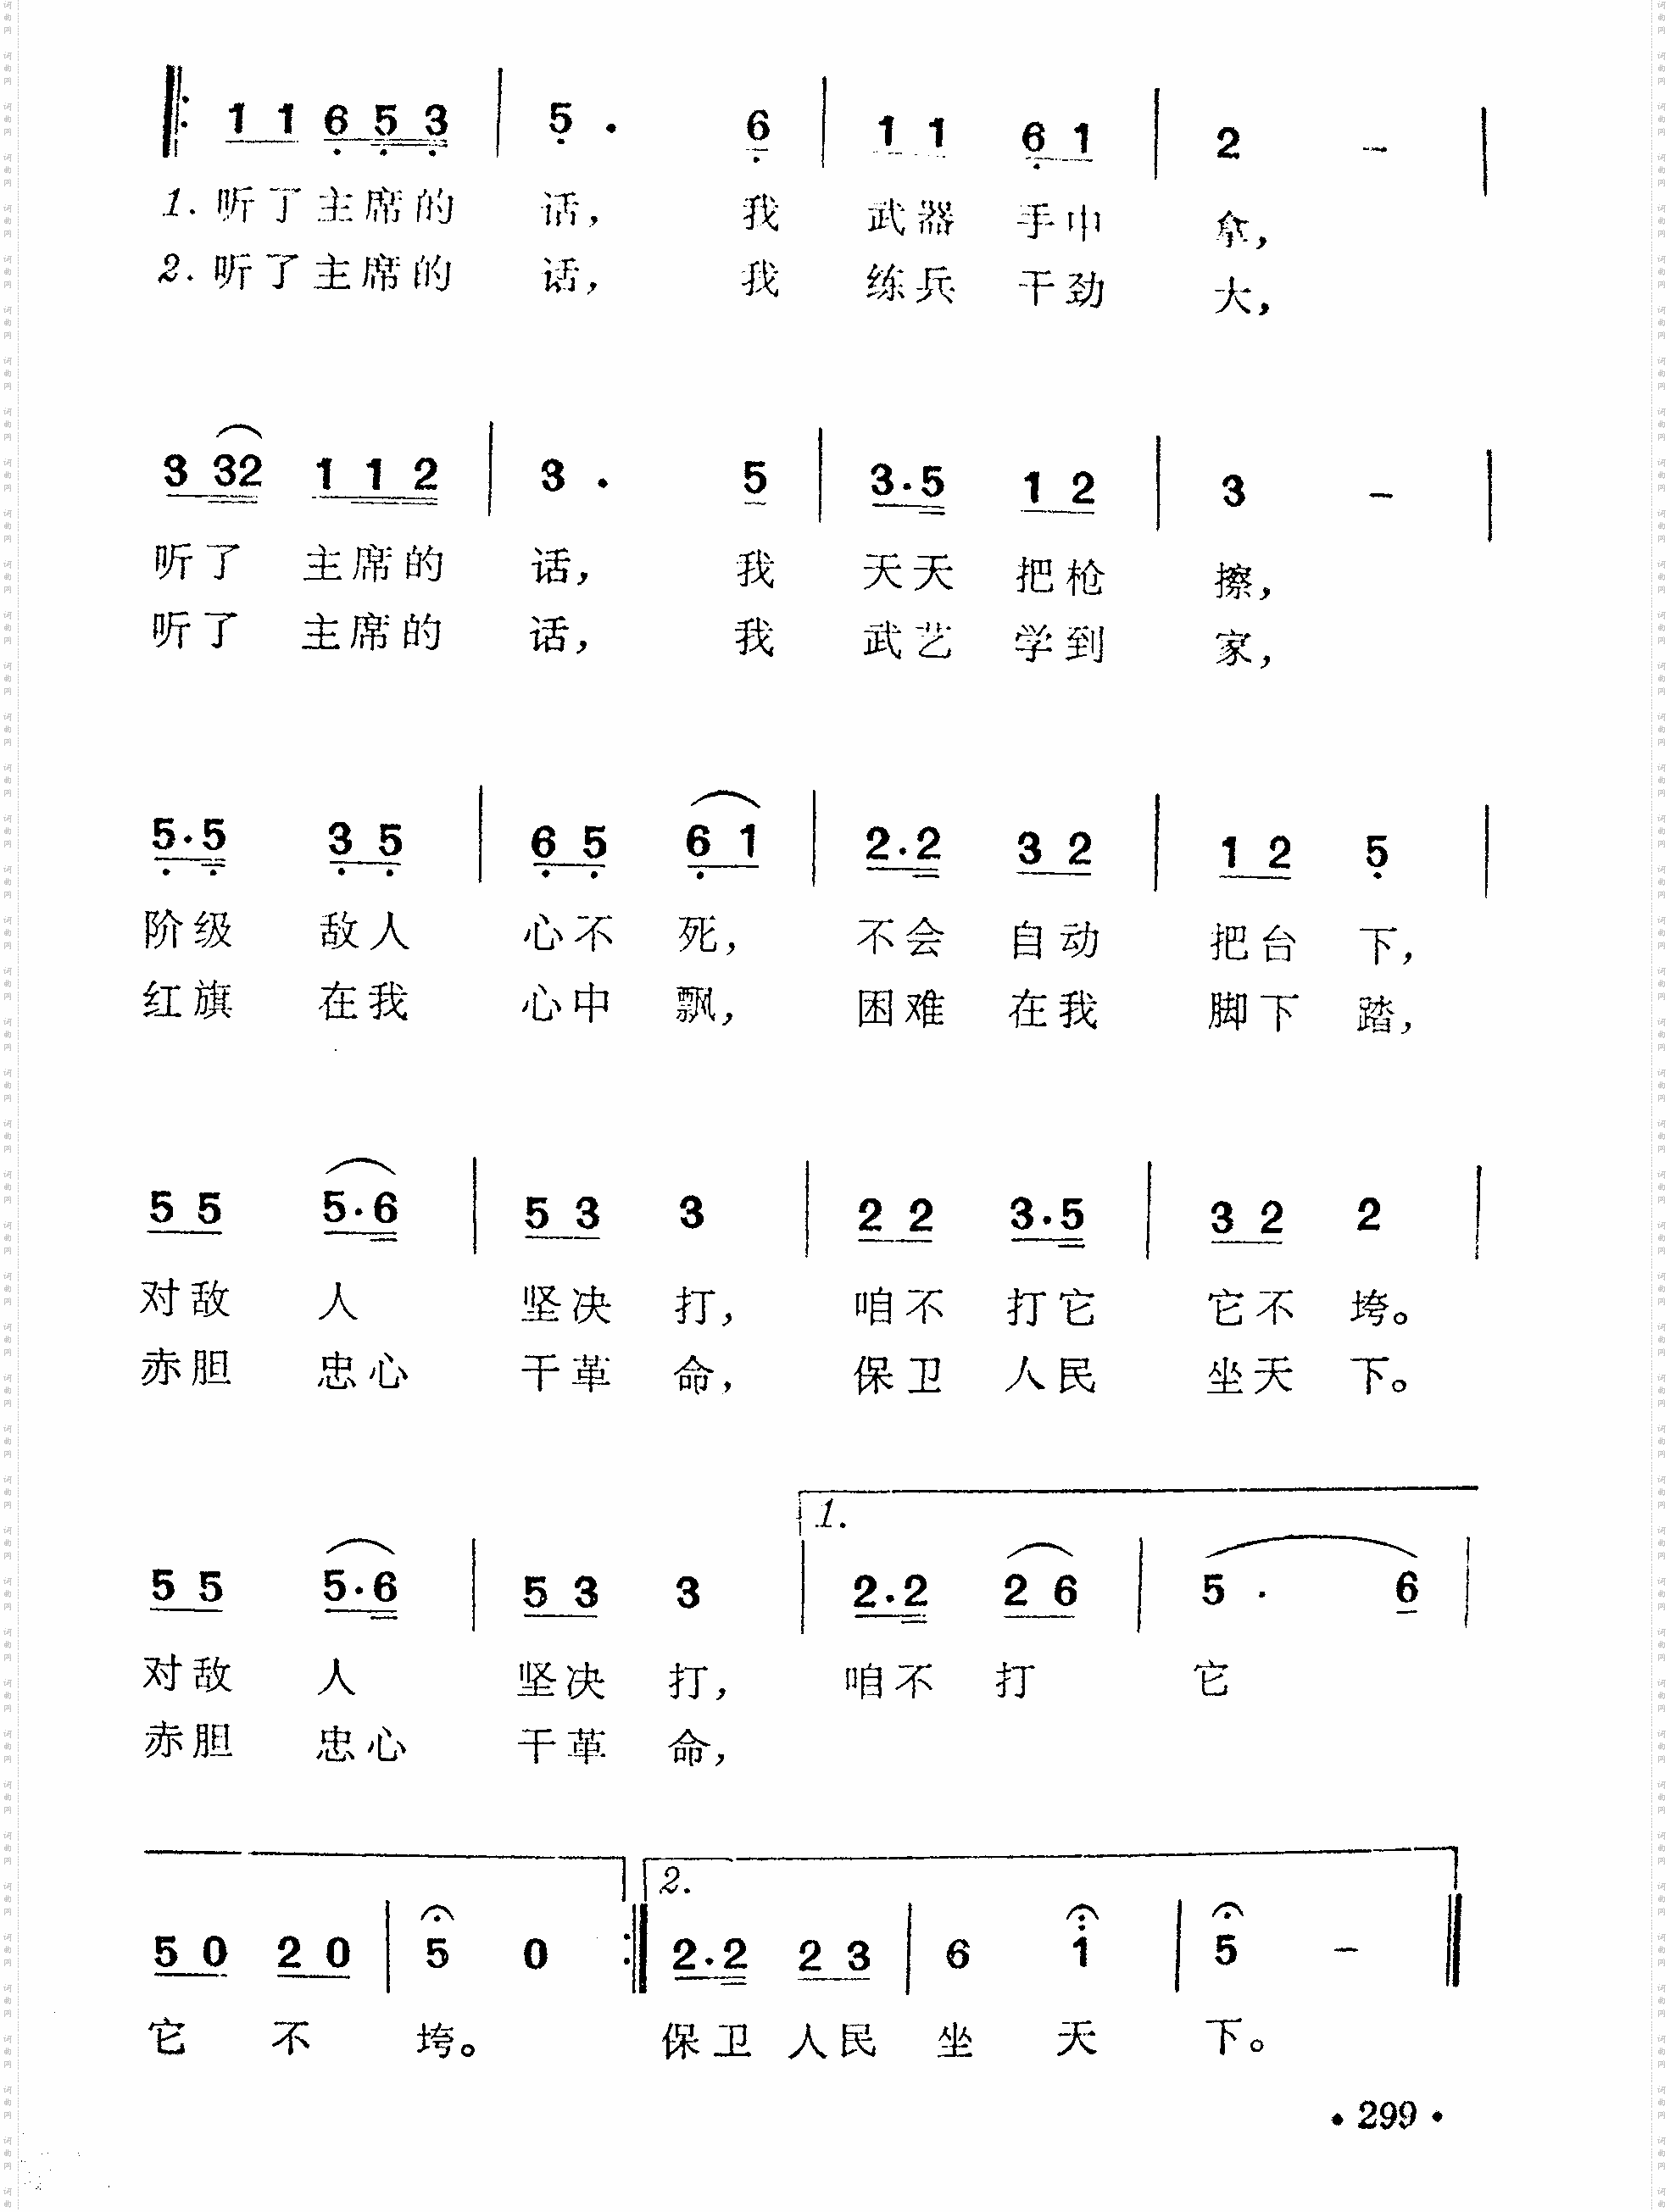 1 1 6 5 3 | 5 . 6 | 1 1 6 1 | 2 - |
1. 听了主席的 话， 我 武器 手中 拿，
2. 听了主席的 话， 我 练兵 干劲 大，
3 32 1 1 2 | 3 . 5 | 3.5 1 2 | 3 - |
听了 主席的 话， 我 天天 把枪 擦，
听了 主席的 话， 我 武艺 学到 家，
5.5 3 5 | 6 5 6 1 | 2.2 3 2 | 1 2 5 |
阶级 敌人 心不 死， 不会 自动 把台 下，
红旗 在我 心中 飘， 困难 在我 脚下 踏，
5 5 5.6 | 5 3 3 | 2 2 3.5 | 3 2 2 |
对敌 人 坚决 打， 咱不 打它 它不 垮。
赤胆 忠心 干革 命， 保卫 人民 坐天 下。
1.
5 5 5.6 | 5 3 3 | 2.2 2 6 | 5 . 6 |
对敌 人 坚决 打， 咱不 打 它
赤胆 忠心 干革 命，
2.
5 0 2 0 | 5 0 :| 2.2 2 3 | 6 1 | 5 - |
它 不 垮。 保卫 人民 坐 天 下。
· 299 ·